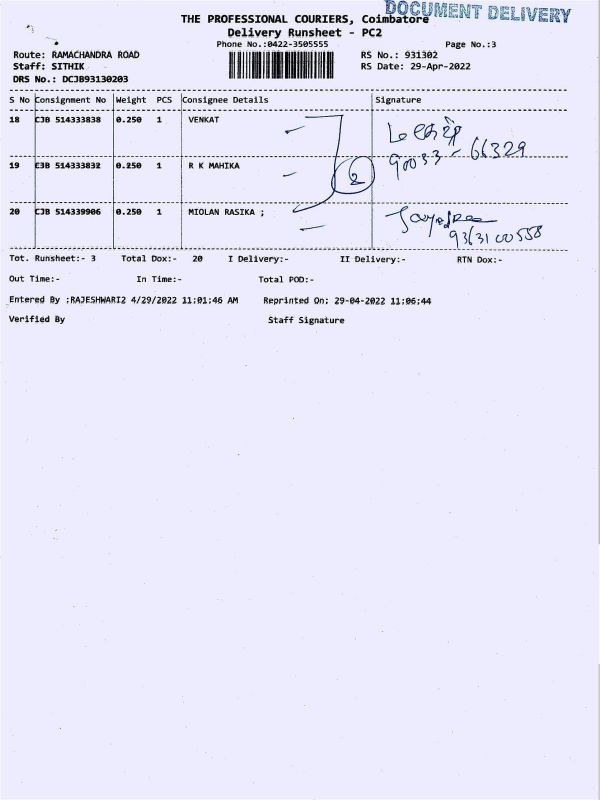 DOCUMENT DELIVERY
THE PROFESSIONAL COURIERS, Coimbatore
Delivery Runsheet - PC2
Phone No.:0422-3505555 Page No.:3
Route: RAMACHANDRA ROAD RS No.: 931302
Staff: SITHIK RS Date: 29-Apr-2022
DRS No.: DCJB93130203
S No Consignment No Weight PCS Consignee Details Signature
18 CJB 514333838 0.250 1 VENKAT
90033-66329
19 CJB 514333832 0.250 1 R K MAHIKA
2
20 CJB 514339906 0.250 1 MIOLAN RASIKA ;
9363100558
Tot. Runsheet:- 3 Total Dox:- 20 I Delivery:- II Delivery:- RTN Dox:-
Out Time:- In Time:- Total POD:-
Entered By :RAJESHWARI2 4/29/2022 11:01:46 AM Reprinted On: 29-04-2022 11:06:44
Verified By Staff Signature